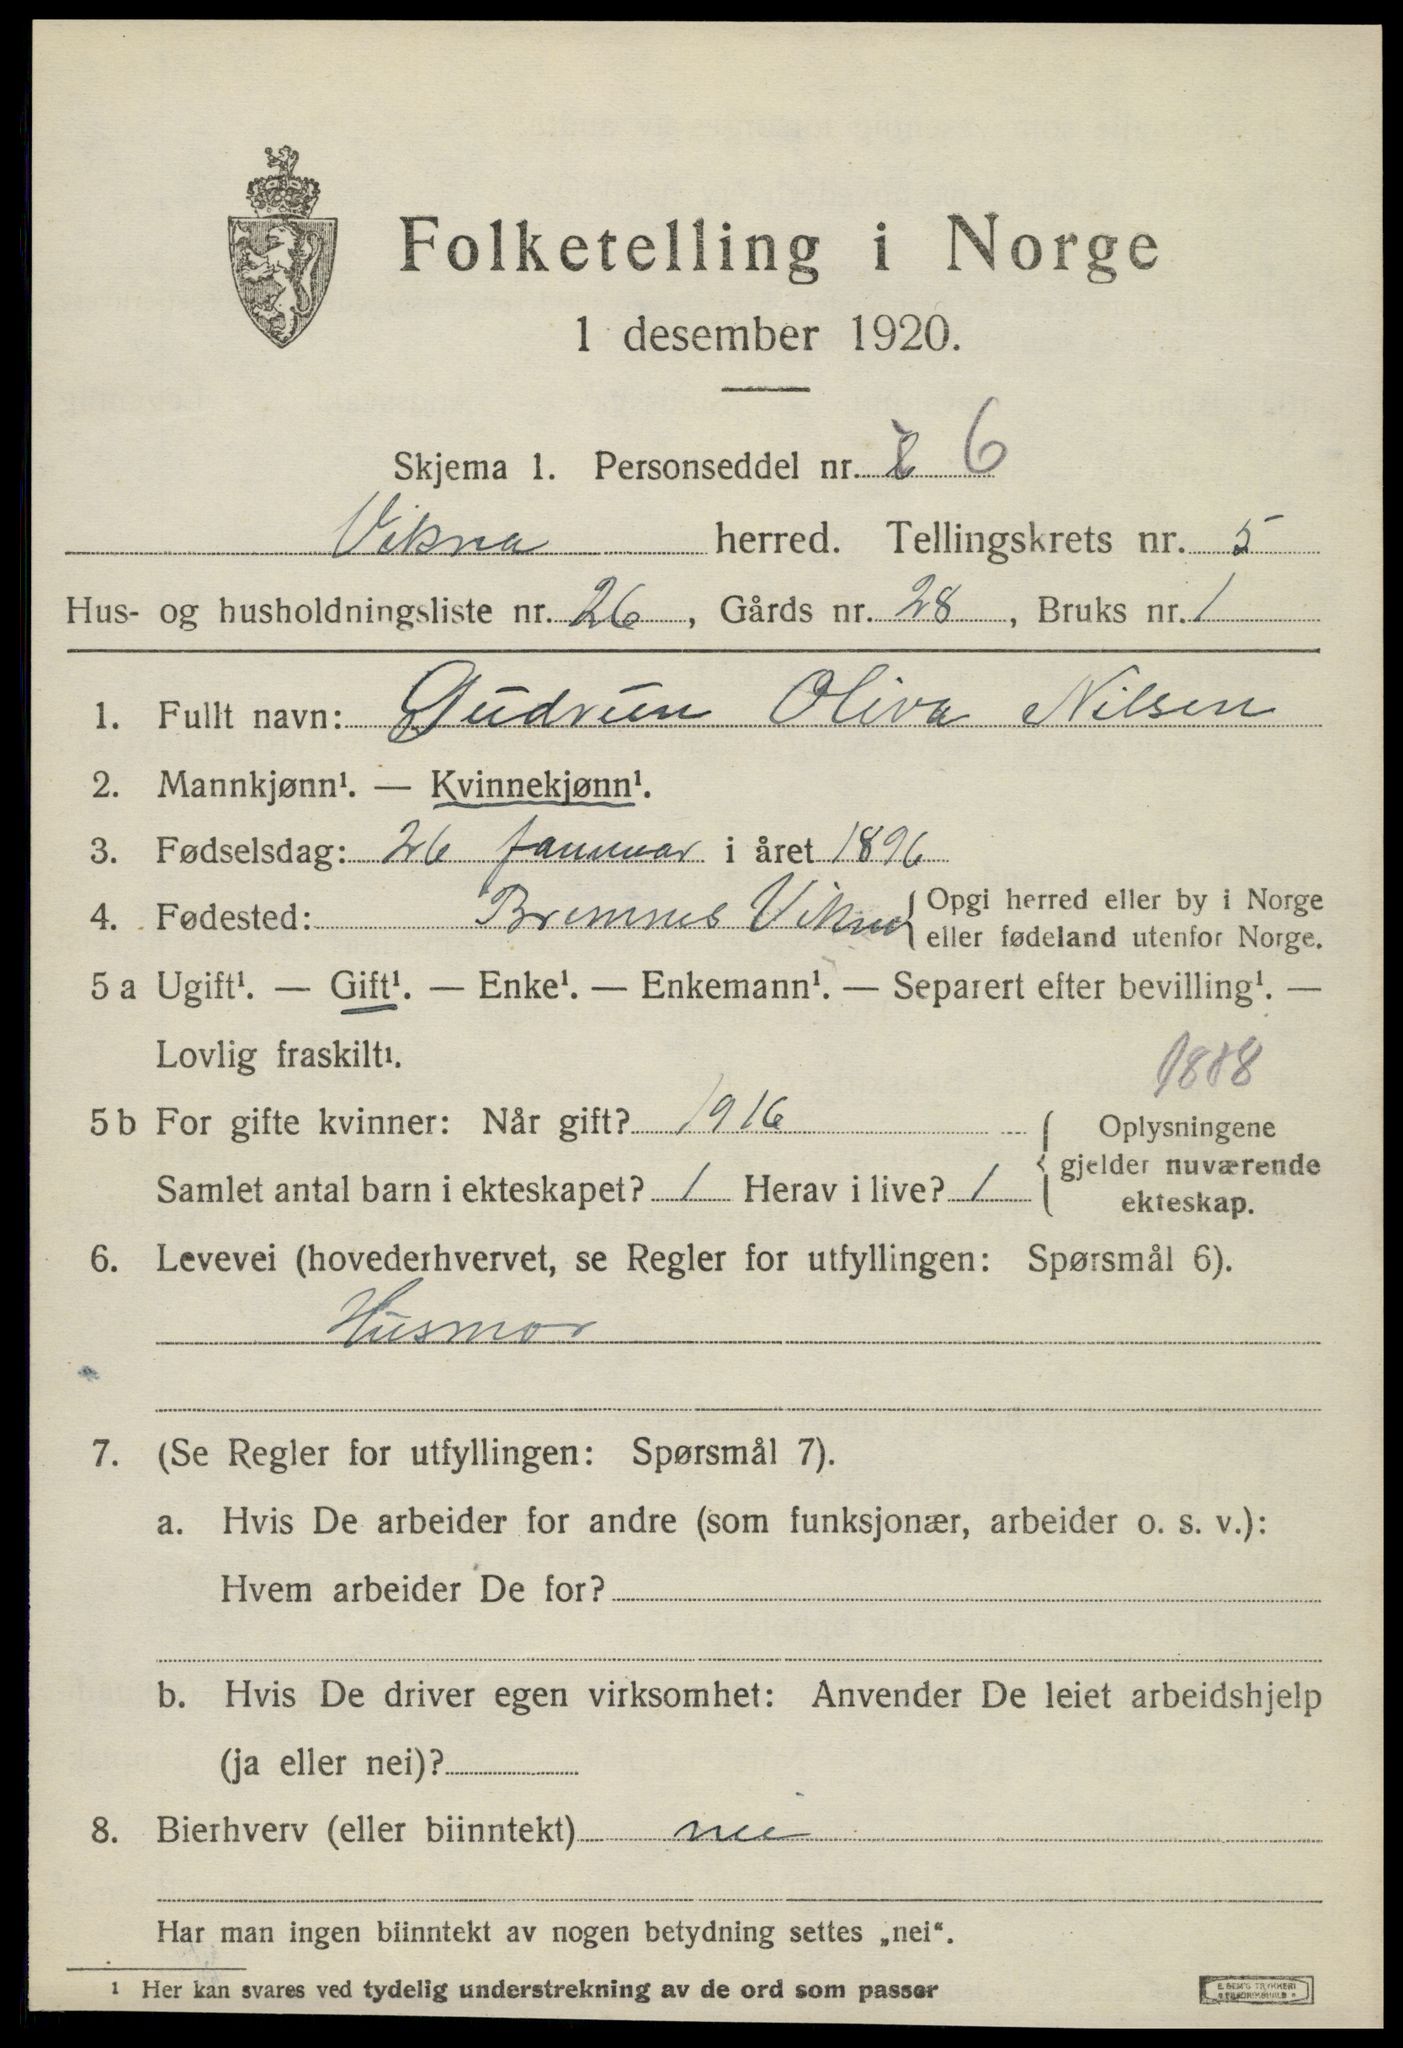 Folketelling i Norge
1 desember 1920.
Skjema 1. Personseddel nr. 6
Vikna herred. Tellingskrets nr. 5
Hus- og husholdningsliste nr. 26, Gårds nr. 28, Bruks nr. 1
1. Fullt navn: Gudrun Oliva Nilsen
2. Mannkjønn¹. — Kvinnekjønn¹.
3. Fødselsdag: 26 Januar i året 1896
4. Fødested: Bremnes Vikna { Opgi herred eller by i Norge
eller fødeland utenfor Norge.
5 a Ugift¹. — Gift¹. — Enke¹. — Enkemann¹. — Separert efter bevilling¹. —
Lovlig fraskilt¹.
1888
5 b For gifte kvinner: Når gift? 1916
Samlet antal barn i ekteskapet? 1 Herav i live? 1
{ Oplysningene
gjelder nuværende
ekteskap.
6. Levevei (hovederhvervet, se Regler for utfyllingen: Spørsmål 6).
Husmor
7. (Se Regler for utfyllingen: Spørsmål 7).
a. Hvis De arbeider for andre (som funksjonær, arbeider o. s. v.):
Hvem arbeider De for?
b. Hvis De driver egen virksomhet: Anvender De leiet arbeidshjelp
(ja eller nei)?
8. Bierhverv (eller biinntekt) nei
Har man ingen biinntekt av nogen betydning settes „nei“.
¹ Her kan svares ved tydelig understrekning av de ord som passer